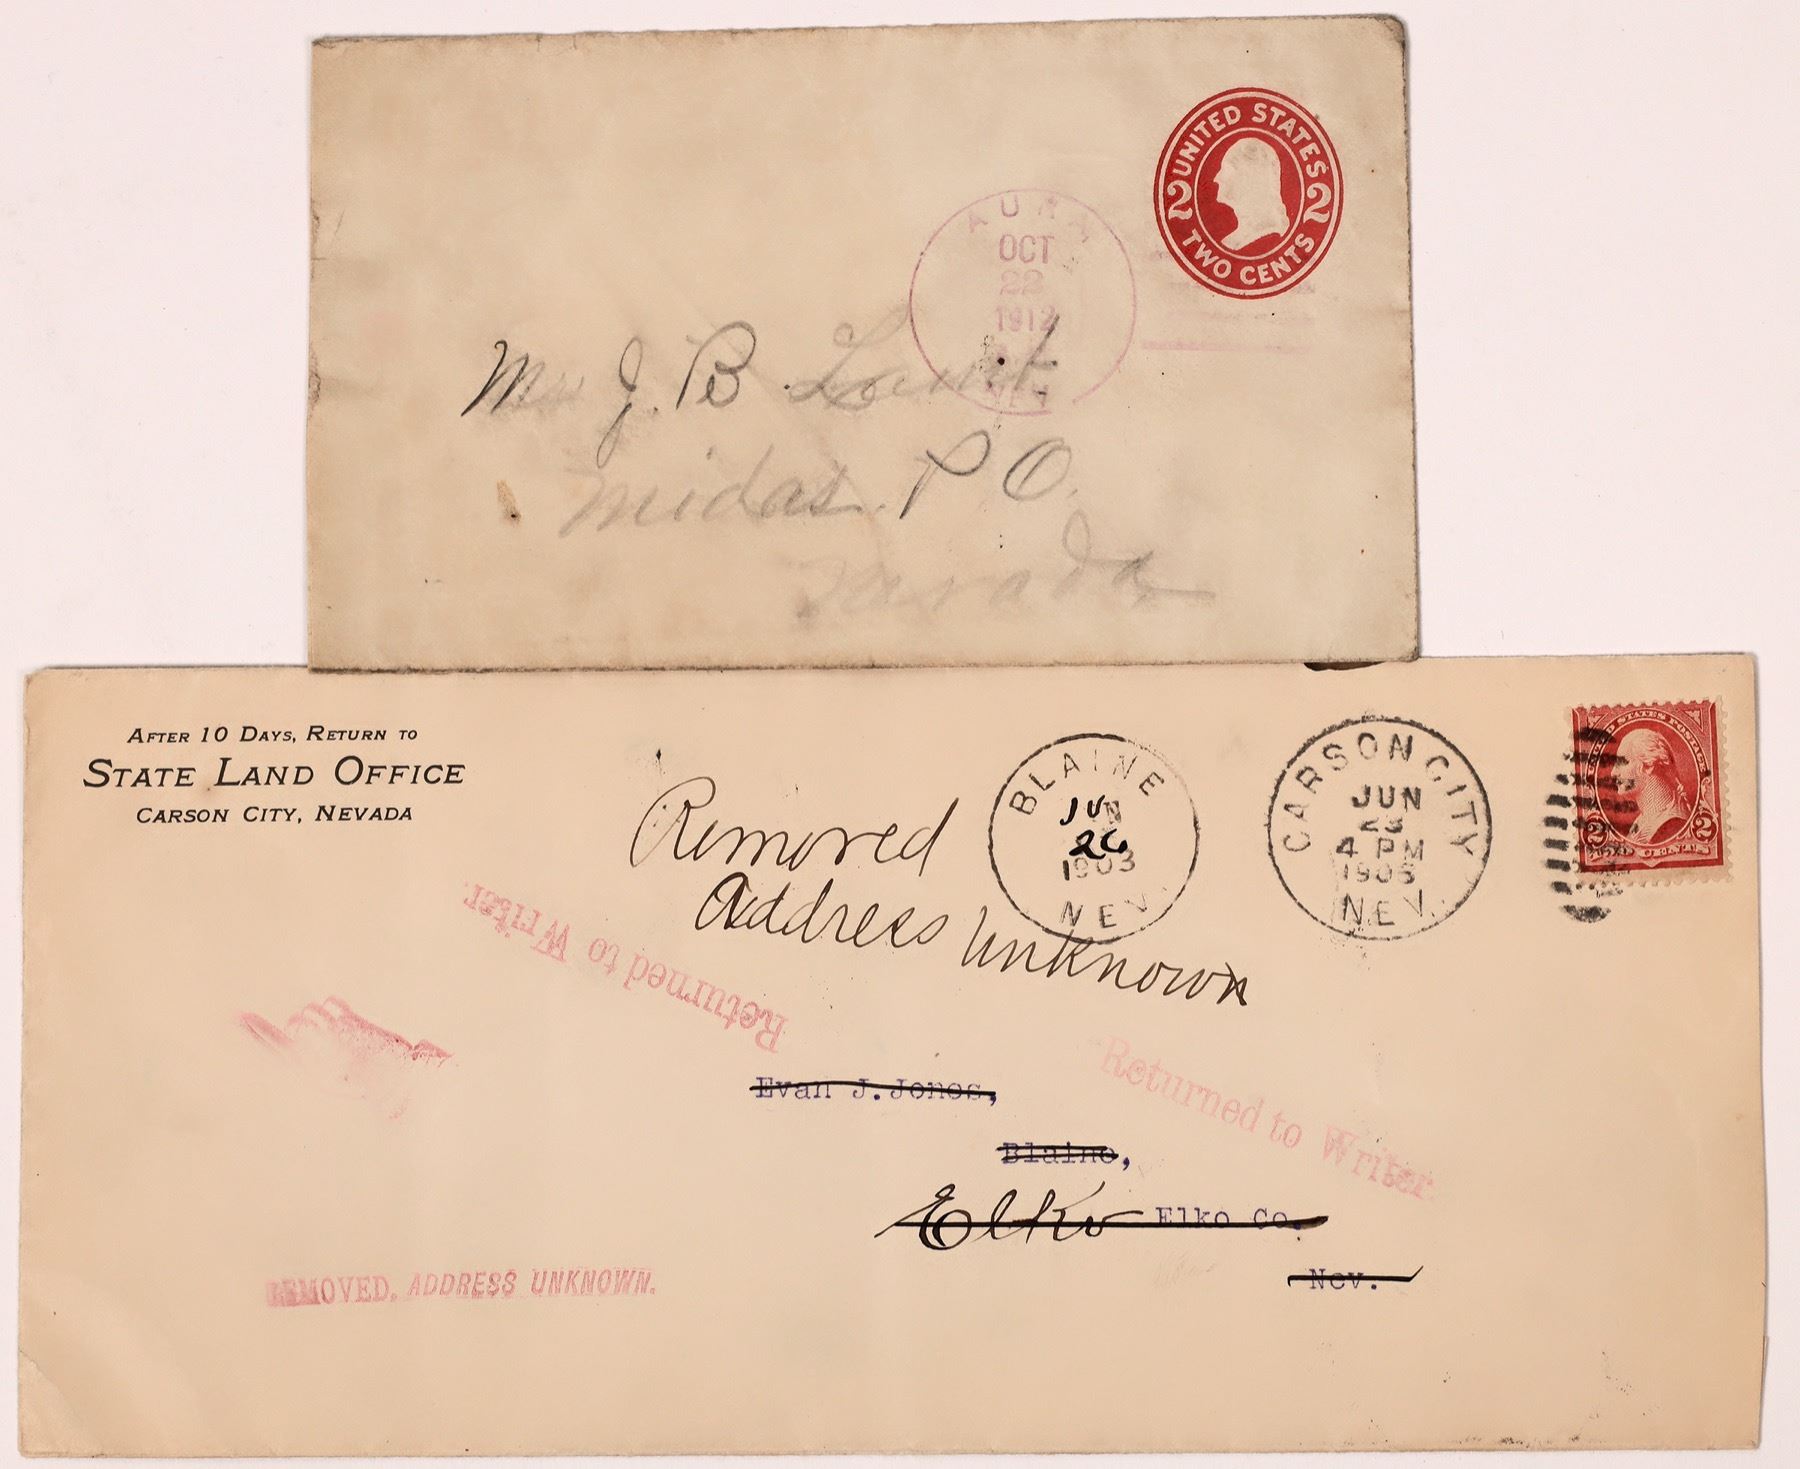 UNITED STATES
2 2
TWO CENTS
AURA
OCT
22
1912
NEV
Mr J. B. Lamt
Midas. P O.
Nevada
AFTER 10 DAYS, RETURN TO
STATE LAND OFFICE
CARSON CITY, NEVADA
Removed
Address Unknown
BLAINE
JUN
26
1903
NEV.
CARSON CITY
JUN
23
4 PM
1903
NEV.
UNITED STATES POSTAGE
2 2
TWO CENTS
Returned to Writer.
Returned to Writer.
Evan J. Jones,
Blaine,
Elko Elko Co.
Nev.
REMOVED, ADDRESS UNKNOWN.